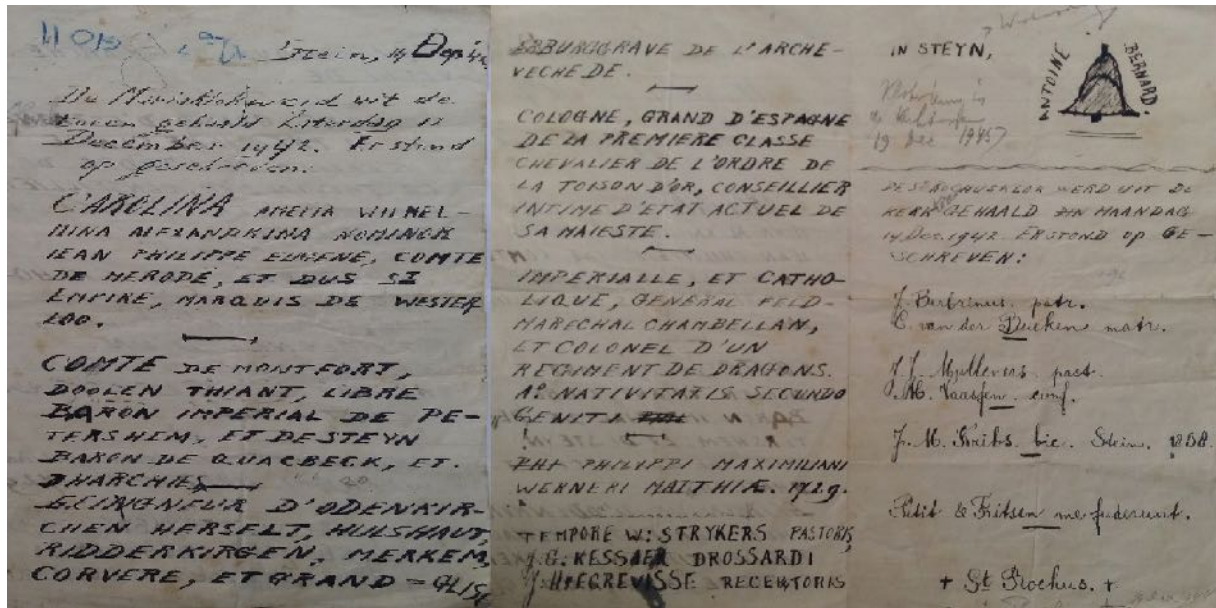 Stein, 14 Dec '42
De Mariaklok werd uit de
toren gehaald Zaterdag 12
December 1942. Er stond
op geschreven:
CAROLINA AMELIA WILHEL-
MINA ALEXANDRINA NOMINOR
IEAN PHILIPPE EUGENE, COMTE
DE MERODE, ET DUS SI
EMPIRE, MARQUIS DE WESTER
LOO.
COMTE DE MONTFORT,
DOOLEN THIANT, LIBRE
BARON IMPERIAL DE PE-
TERSHEM, ET DE STEYN
BARON DE QUACBECK, ET.
DHARCHIES
SEIGNEUR D'ODENKIR-
CHEN HERSELT, HULSHAUT,
RIDDERKIRGEN, MERKEM,
CORVERE, ET GRAND =
EBBURGGRAVE DE L'ARCHE-
VECHE DE.
COLOGNE, GRAND D'ESPAGNE
DE LA PREMIERE CLASSE
CHEVALIER DE L'ORDRE DE
LA TOISON D'OR, CONSEILLIER
INTIME D'ETAT ACTUEL DE
SA MAIESTE.
IMPERIALLE, ET CATHO-
LIQUE, GENERAL FELD-
MARECHAL CHAMBELLAN,
ET COLONEL D'UN
REGIMENT DE DRAGONS.
A° NATIVITATIS SECUNDO
GENITA
PHI PHILIPPI MAXIMILIANI
WERNERI MATTHIÆ. 1729.
TEMPORE W: STRYKERS PASTORIS
J.G. KESSAER DROSSARDI
J. H. EGREVISSE RECEPTORIS
IN STEYN,
ANTOINE BERNARD.
19 Dec 1945
WERD UIT DE
KERK GEHAALD MAANDAG
14 Dec. 1942. ER STOND OP GE-
SCHREVEN:
patr.
C. van der matr.
J. J. past.
Vaassen conf.
J. M. vic. Stein. 1858.
Petit & Fritsen me fuderunt.
+ St Rochus. +